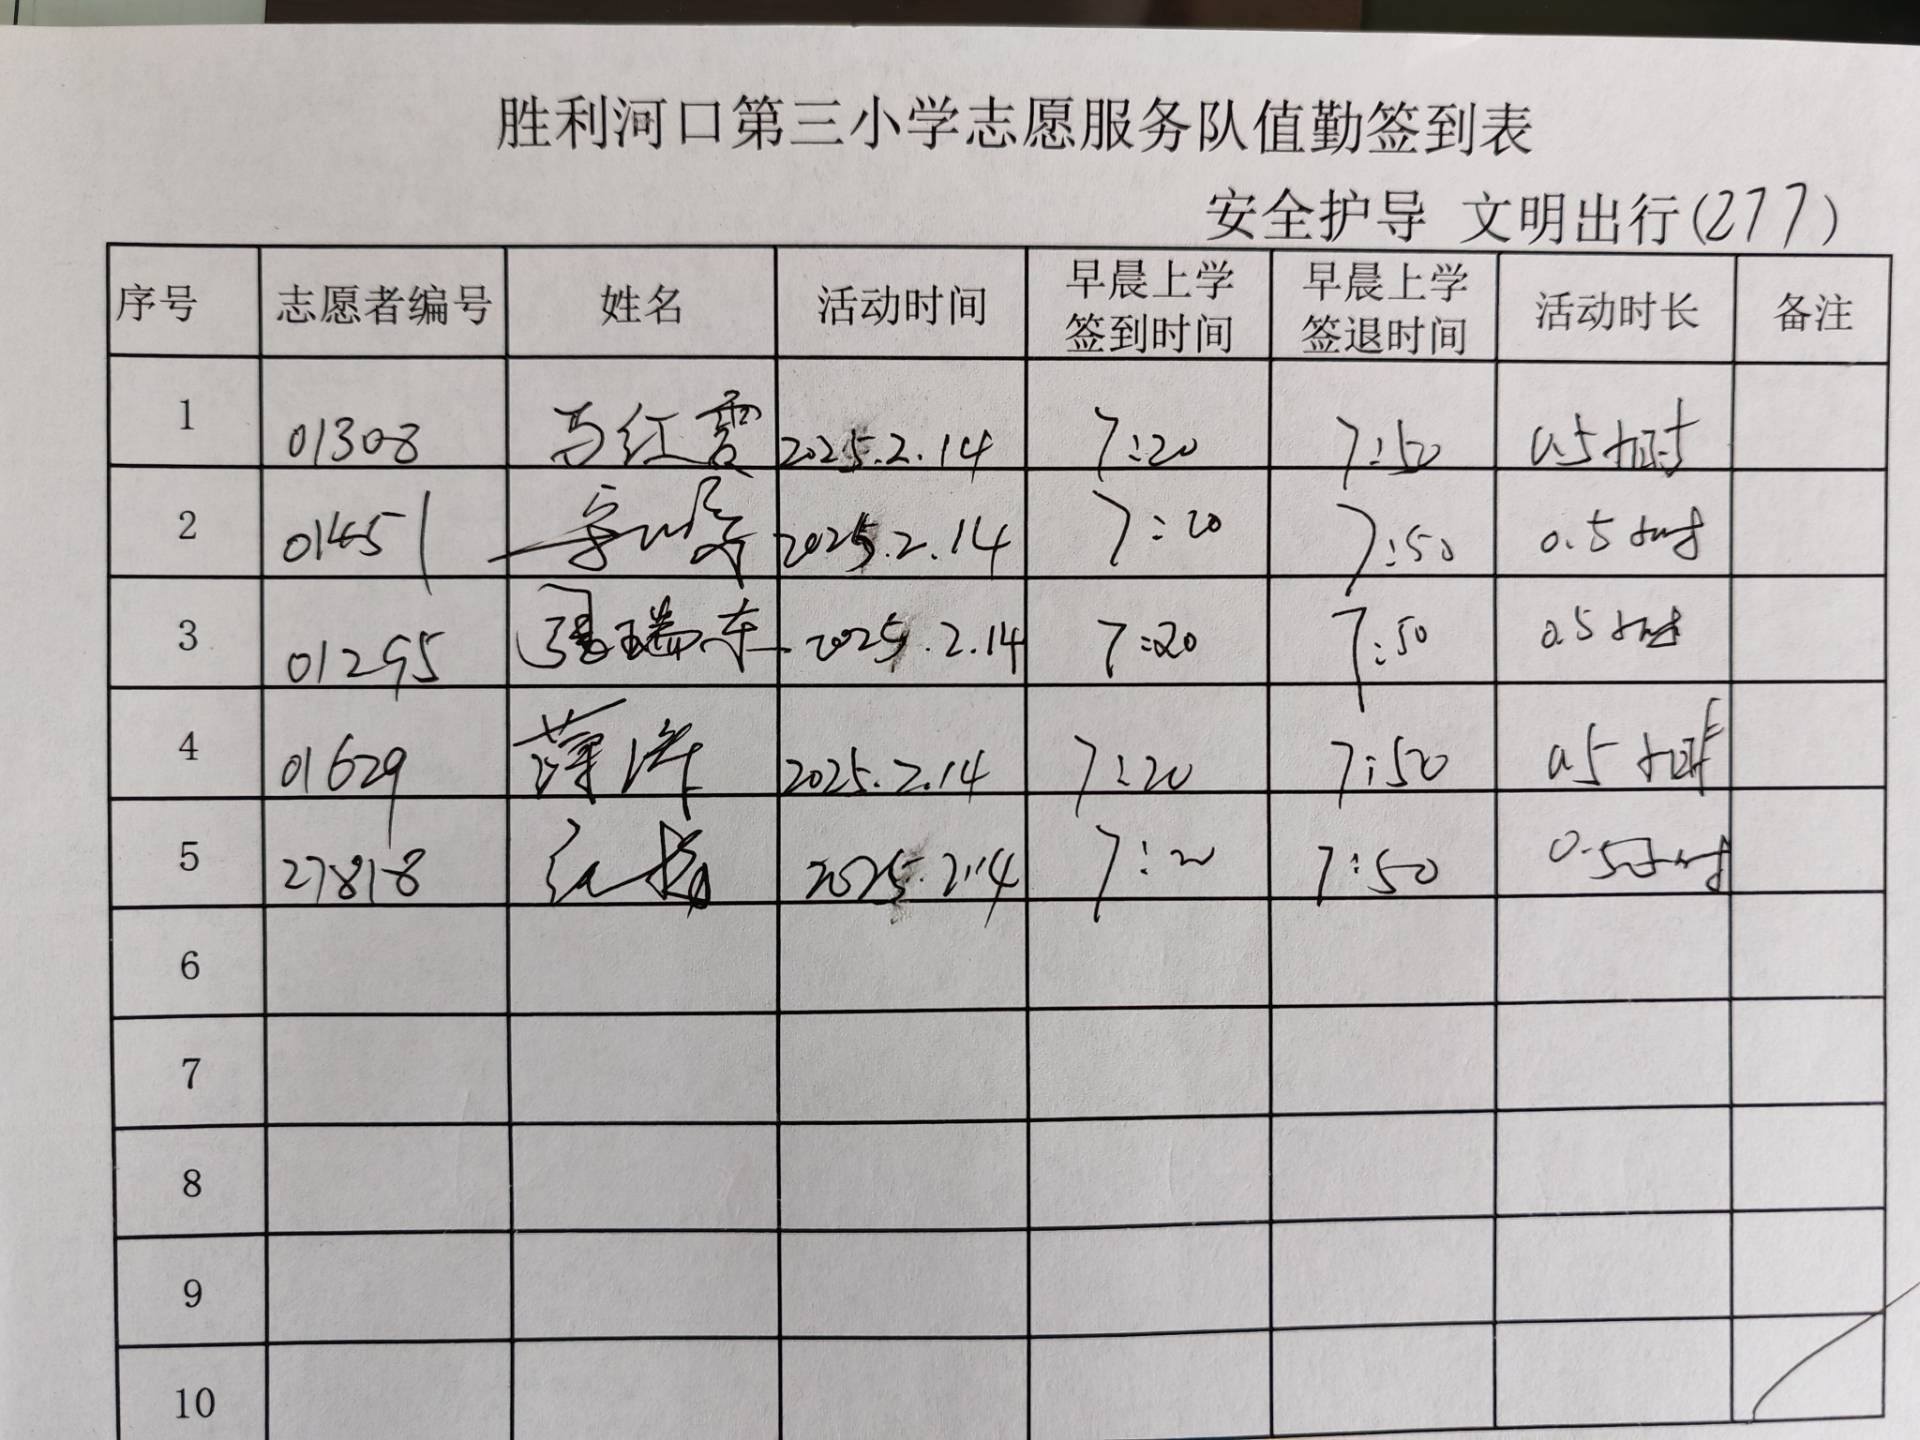 胜利河口第三小学志愿服务队值勤签到表
安全护导 文明出行(277)
序号 志愿者编号 姓名 活动时间 早晨上学签到时间 早晨上学签退时间 活动时长 备注
1 01308 马红霞 2025.2.14 7:20 7:50 0.5小时
2 01451 2025.2.14 7:20 7:50 0.5小时
3 01295 张瑞东 2025.2.14 7:20 7:50 0.5小时
4 01629 薄洋 2025.2.14 7:20 7:50 0.5小时
5 27818 2025.2.14 7:20 7:50 0.5小时
6
7
8
9
10